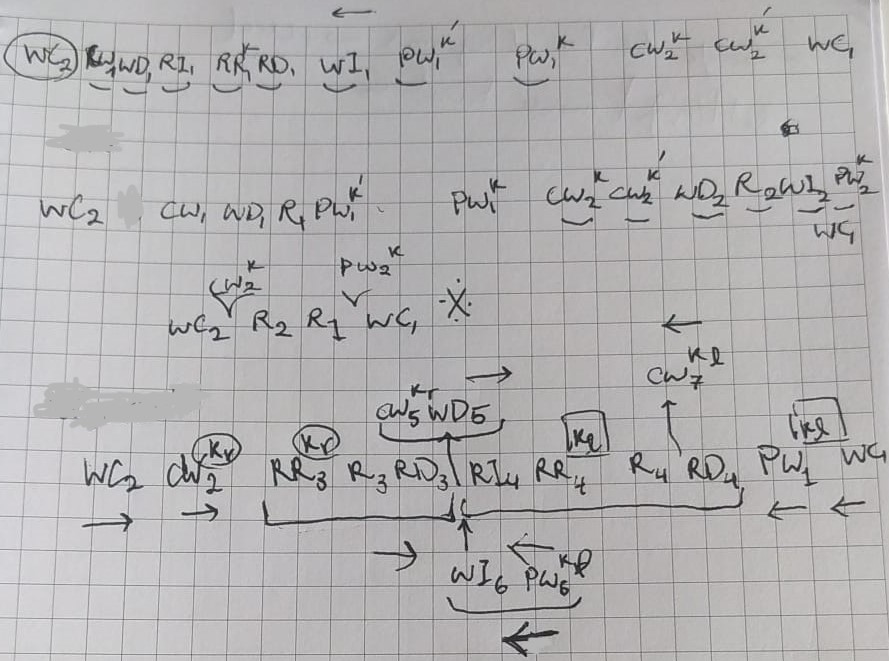 ←
WC₂ WD₁ RI₁ RR₁ᴷ RD₁ WI₁ PW₁ᴷ′ PW₁ᴷ CW₂ᴷ CW₂ᴷ′ WC₁
←
WC₂ CW₁ WD₁ R₁ PW₁ᴷ′ PW₁ᴷ CW₂ᴷ CW₂ᴷ′ WD₂ R₂ WI₂ PW₂ᴷ
WC₁
CW₂ᴷ PW₂ᴷ
WC₂ R₂ R₁ WC₁
←
→ CW₇ᴷˡ
CW₅ᴷʳ WD₅
WC₂ CW₂ᴷʳ RR₃ᴷʳ R₃ RD₃ RI₄ RR₄ᴷˡ R₄ RD₄ PW₁ᴷˡ WC₁
→ → ← ←
→ ←
WI₆ PW₆ᴷˡ
←